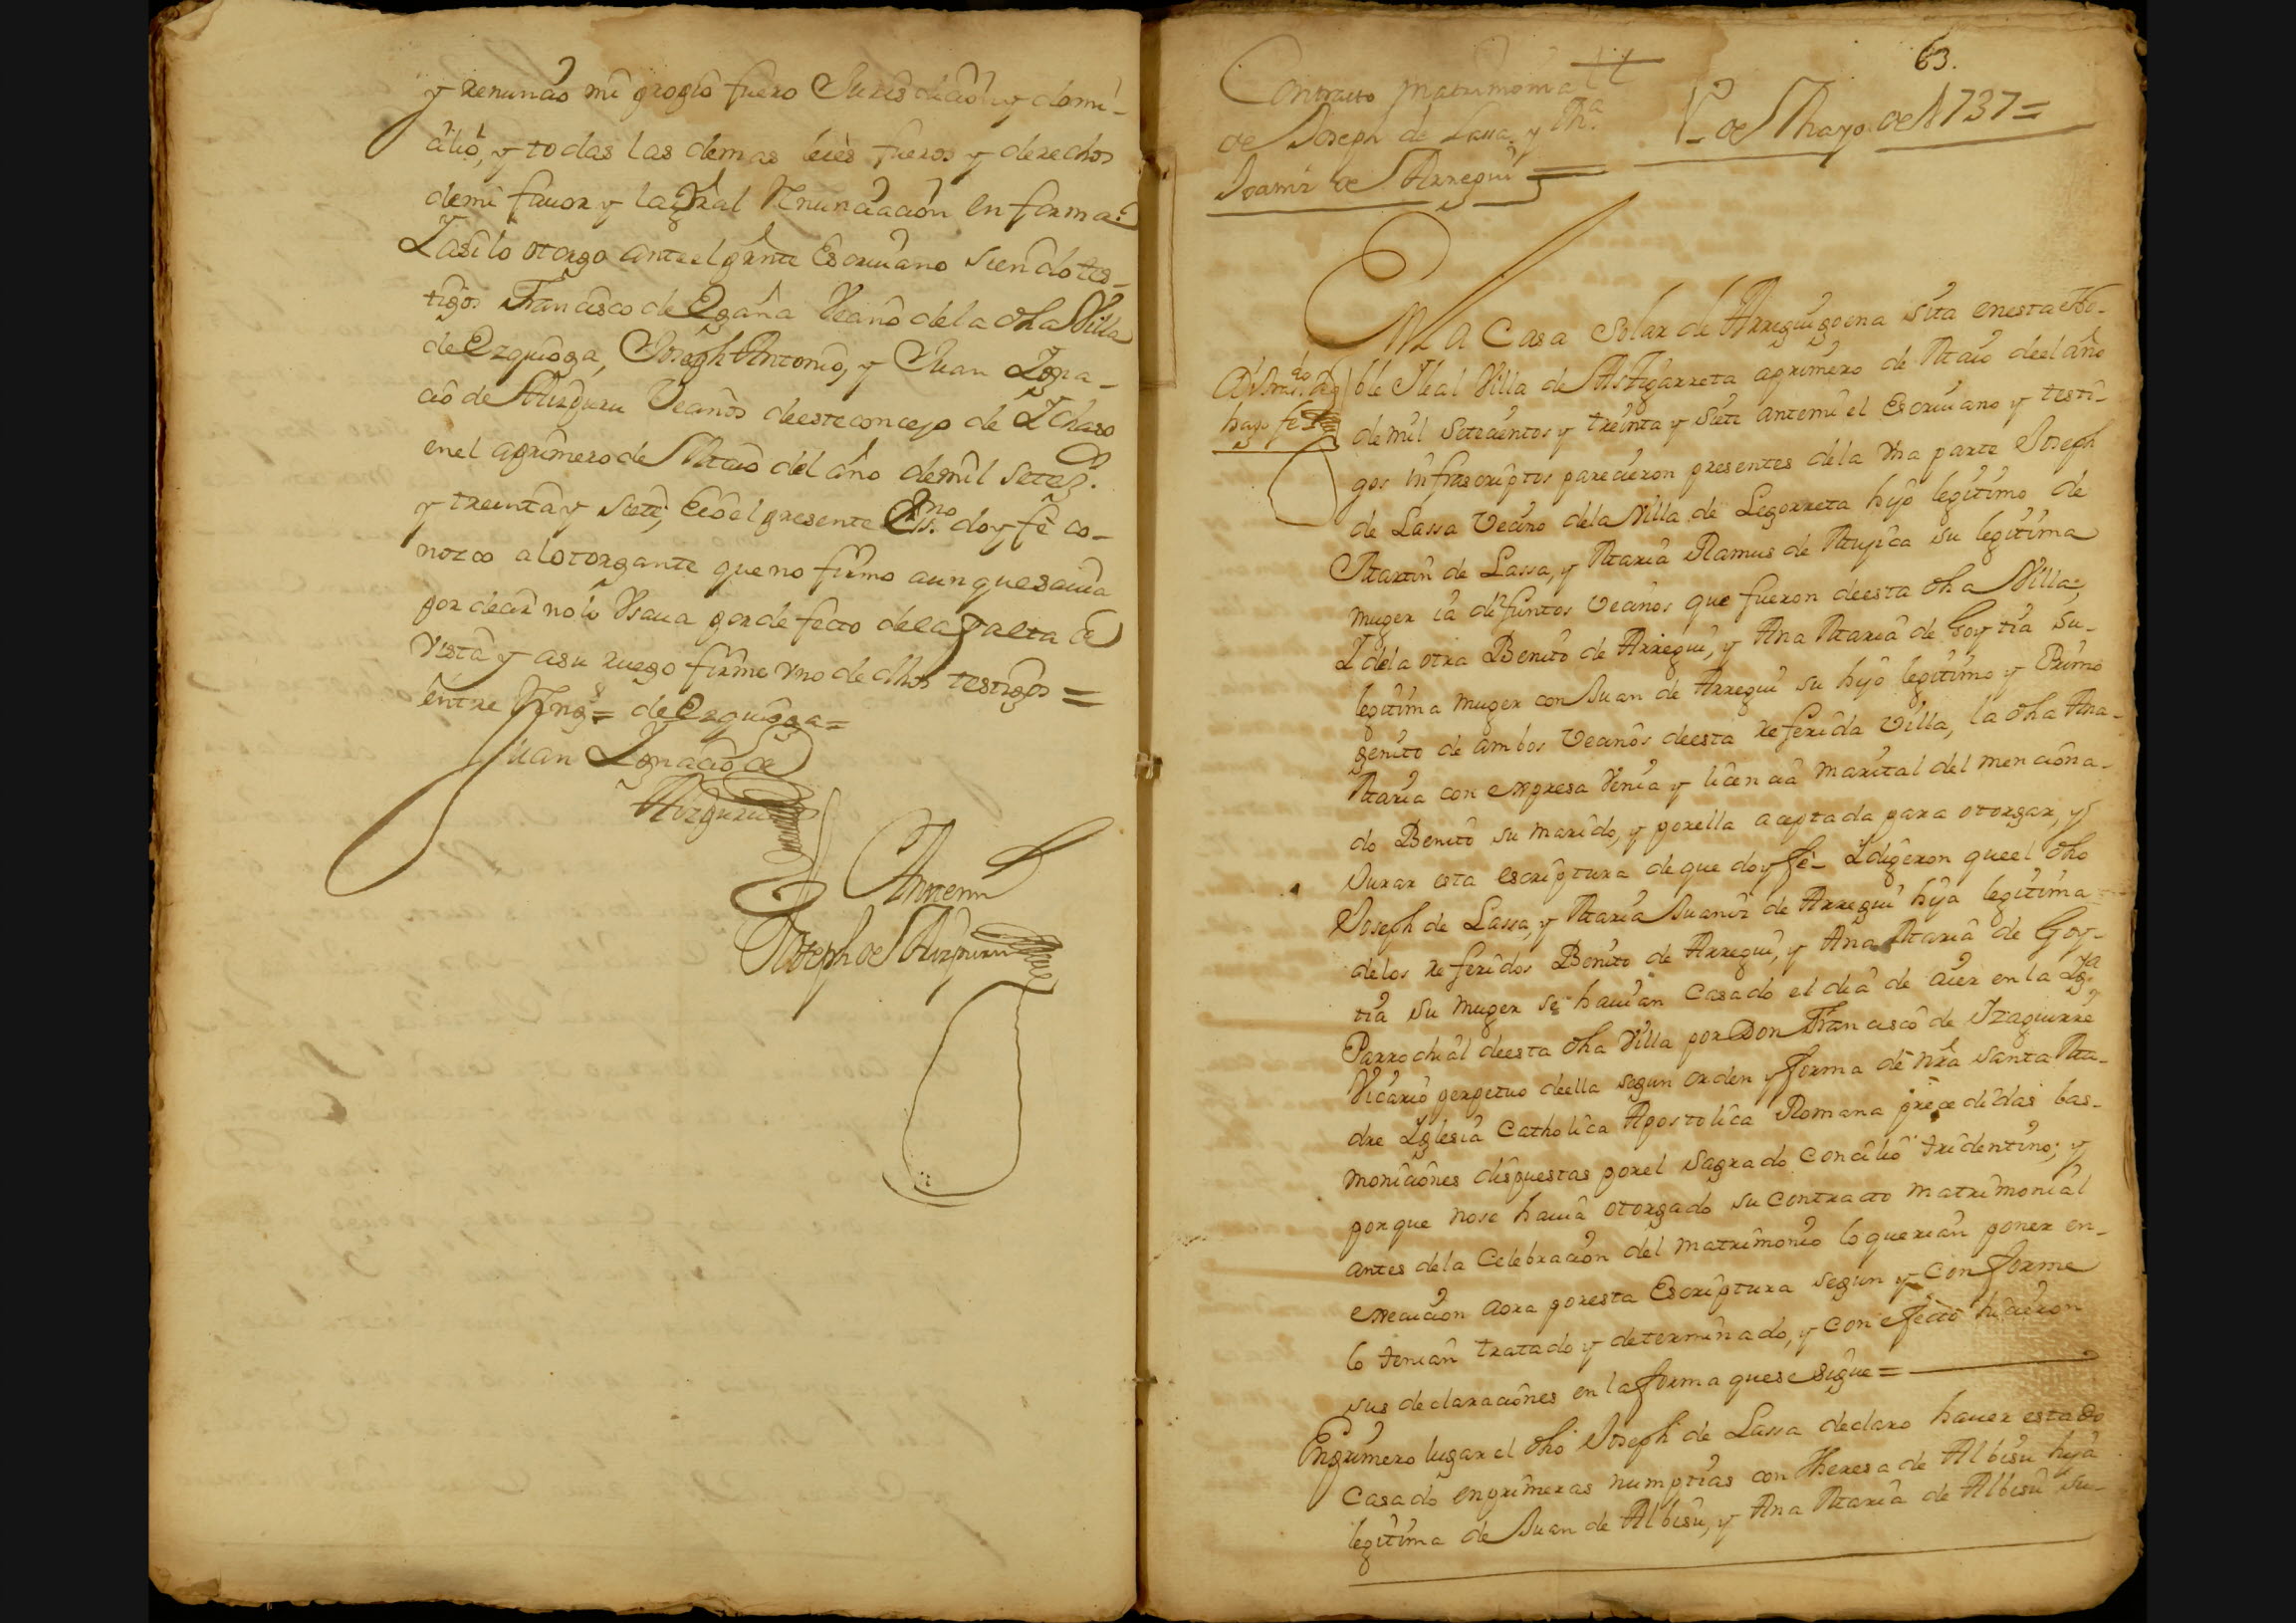 y renuncio mi propio fuero Jurisdiccion y domi-
cilio, y todas las demas leies fueros y derechos
de mi fauor y la gral Renunciacion en forma:
Y asi lo otorgo ante el preste Escriuano siendo tes-
tigos Francisco de Egaña Vecino de la dha Villa
de Ezquioga, Joseph Antonio, y Juan Igna-
cio de Aizpuru Vecinos de este concejo de Ichaso
en el a primero de Maio del año de mil setez.
y treinta y siete, e io el presente Essno. doy fe co-
nozco al otorgante que no firmo aunque sauia
por decir no lo Vsaua por defecto de la falta de
vista y a su ruego firme vno de dhos testigos =
entre Rengs = de Ezquioga =
Juan Ignacio de
Aizpuru
Antemi
Joseph de Aizpuru
63.
Contracto matrimonial
de Joseph de Lassa y Ma.
Joaniz de Arregui =
1o. de Mayo de 1737 =
En la Casa Solar de Arreguigoena sita en esta No-
ble Leal Villa de Astigarreta a primero de Maio de el año
hago fe
de mil setecientos y treinta y siete antemi el Escriuano y testi-
gos infrascriptos parecieron presentes de la vna parte Joseph
de Lassa Vecino de la Villa de Legorreta hijo legitimo de
Martin de Lassa, y Maria Ramus de Mujica su legitima
muger ia difuntos vecinos que fueron de esta dha Villa;
Y de la otra Benito de Arregui, y Ana Maria de Goytia su
legitima muger con Juan de Arregui su hijo legitimo y Primo
genito de ambos Vecinos de esta referida Villa, la dha Ana
Maria con expresa Venia y licencia marital del menciona-
do Benito su marido, y por ella aceptada para otorgar, y
Jurar esta escriptura de que doy fe- Y digeron que el dho
Joseph de Lassa, y Maria Juaniz de Arregui hija legitima
de los referidos Benito de Arregui, y Ana Maria de Goy-
tia su muger se hauian casado el dia de aier en la Iga
Parrochial de esta dha Villa por Don Francisco de Izaguirre
Vicario perpetuo de ella segun orden y forma de nra santa Ma-
dre Yglesia Catholica Apostolica Romana precedidas las
moniciones dispuestas por el sagrado Concilio tridentino; y
porque no se hauia otorgado su contracto matrimonial
antes de la Celebracion del matrimonio lo querian poner en
execucion aora por esta Escriptura segun y conforme
lo tenian tratado y determinado, y con efecto hicieron
sus declaraciones en la forma que se sigue =
En primero lugar el dho Joseph de Lassa declaro hauer estado
casado en primeras numptias con Theresa de Albisu hija
legitima de Juan de Albisu, y Ana Maria de Albisu su